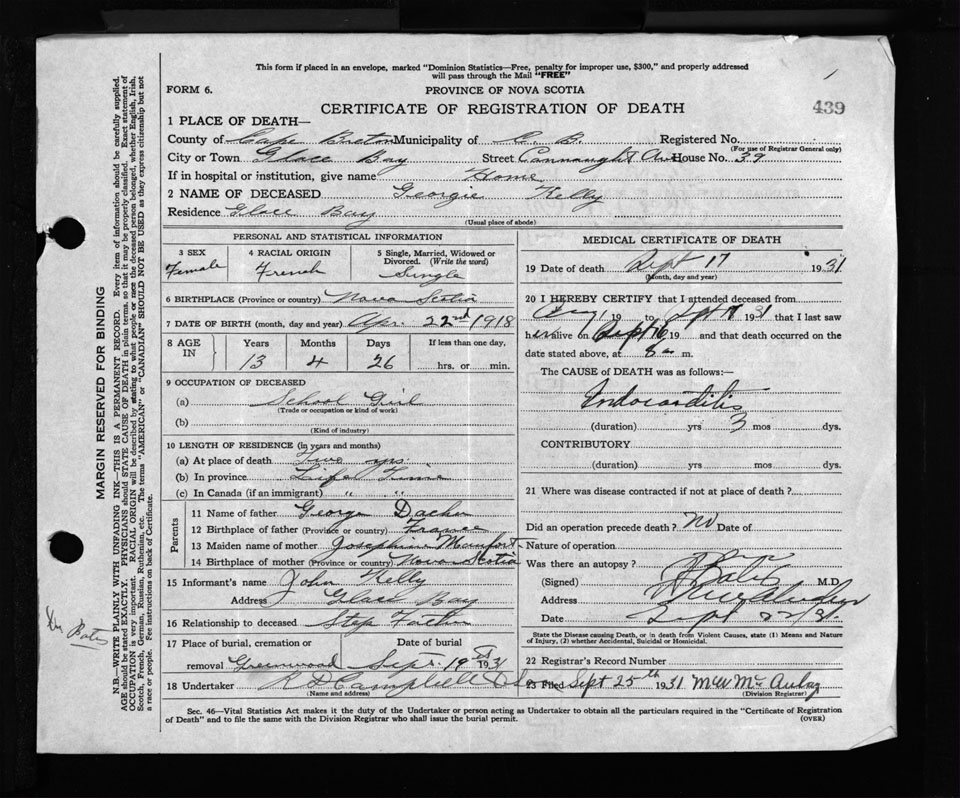 This form if placed in an envelope, marked "Dominion Statistics—Free, penalty for improper use, $300," and properly addressed
will pass through the Mail "FREE"
FORM 6. PROVINCE OF NOVA SCOTIA
CERTIFICATE OF REGISTRATION OF DEATH 439
1 PLACE OF DEATH—
County of Cape Breton Municipality of C. B. Registered No.
(For use of Registrar General only)
City or Town Glace Bay Street Connaught Ave House No. 39
If in hospital or institution, give name Home
2 NAME OF DECEASED Georgie Kelly
Residence Glace Bay
(Usual place of abode)
PERSONAL AND STATISTICAL INFORMATION
3 SEX 4 RACIAL ORIGIN 5 Single, Married, Widowed or
Divorced. (Write the word)
Female French Single
6 BIRTHPLACE (Province or country) Nova Scotia
7 DATE OF BIRTH (month, day and year) Apr. 22nd 1918
8 AGE IN Years Months Days If less than one day,
13 4 26 hrs. or min.
9 OCCUPATION OF DECEASED
(a) School Girl
(Trade or occupation or kind of work)
(b)
(Kind of industry)
10 LENGTH OF RESIDENCE (in years and months)
(a) At place of death Two yrs.
(b) In province Life Time
(c) In Canada (if an immigrant) " "
Parents
11 Name of father George
12 Birthplace of father (Province or country) France
13 Maiden name of mother Josephine
14 Birthplace of mother (Province or country) Nova Scotia
15 Informant's name John Kelly
Address Glace Bay
16 Relationship to deceased Step Father
17 Place of burial, cremation or Date of burial
removal Greenwood Sept. 19 1931
18 Undertaker R D Campbell
(Name and address)
MEDICAL CERTIFICATE OF DEATH
19 Date of death Sept 17 1931
(Month, day and year)
20 I HEREBY CERTIFY that I attended deceased from
19 to Sept 1931 that I last saw
her alive on Sept 16 19 and that death occurred on the
date stated above, at 8 m.
The CAUSE of DEATH was as follows:—
Endocarditis
(duration) yrs 3 mos dys.
CONTRIBUTORY
(duration) yrs mos dys.
21 Where was disease contracted if not at place of death?
Did an operation precede death? No Date of
Nature of operation
Was there an autopsy?
(Signed) M.D.
Address
Date Sept 22/31.
State the Disease causing Death, or in death from Violent Causes, state (1) Means and Nature
of Injury, (2) whether Accidental, Suicidal or Homicidal.
22 Registrar's Record Number
23 Filed Sept 25th 1931
(Division Registrar)
Sec. 46—Vital Statistics Act makes it the duty of the Undertaker or person acting as Undertaker to obtain all the particulars required in the "Certificate of Registration
of Death" and to file the same with the Division Registrar who shall issue the burial permit. (OVER)
MARGIN RESERVED FOR BINDING
N.B.—WRITE PLAINLY WITH UNFADING INK—THIS IS A PERMANENT RECORD. Every item of information should be carefully supplied.
AGE should be stated EXACTLY. PHYSICIANS should STATE CAUSE OF DEATH in plain terms, so that it may be properly classified. Exact statement of
OCCUPATION is very important. RACIAL ORIGIN will be described by stating to what people or race the deceased person belonged, whether English, Irish,
Scotch, French, German, Russian, Ruthenian, etc. The terms "AMERICAN" or "CANADIAN" SHOULD NOT BE USED as they express citizenship but not
a race or people. See instructions on back of Certificate.